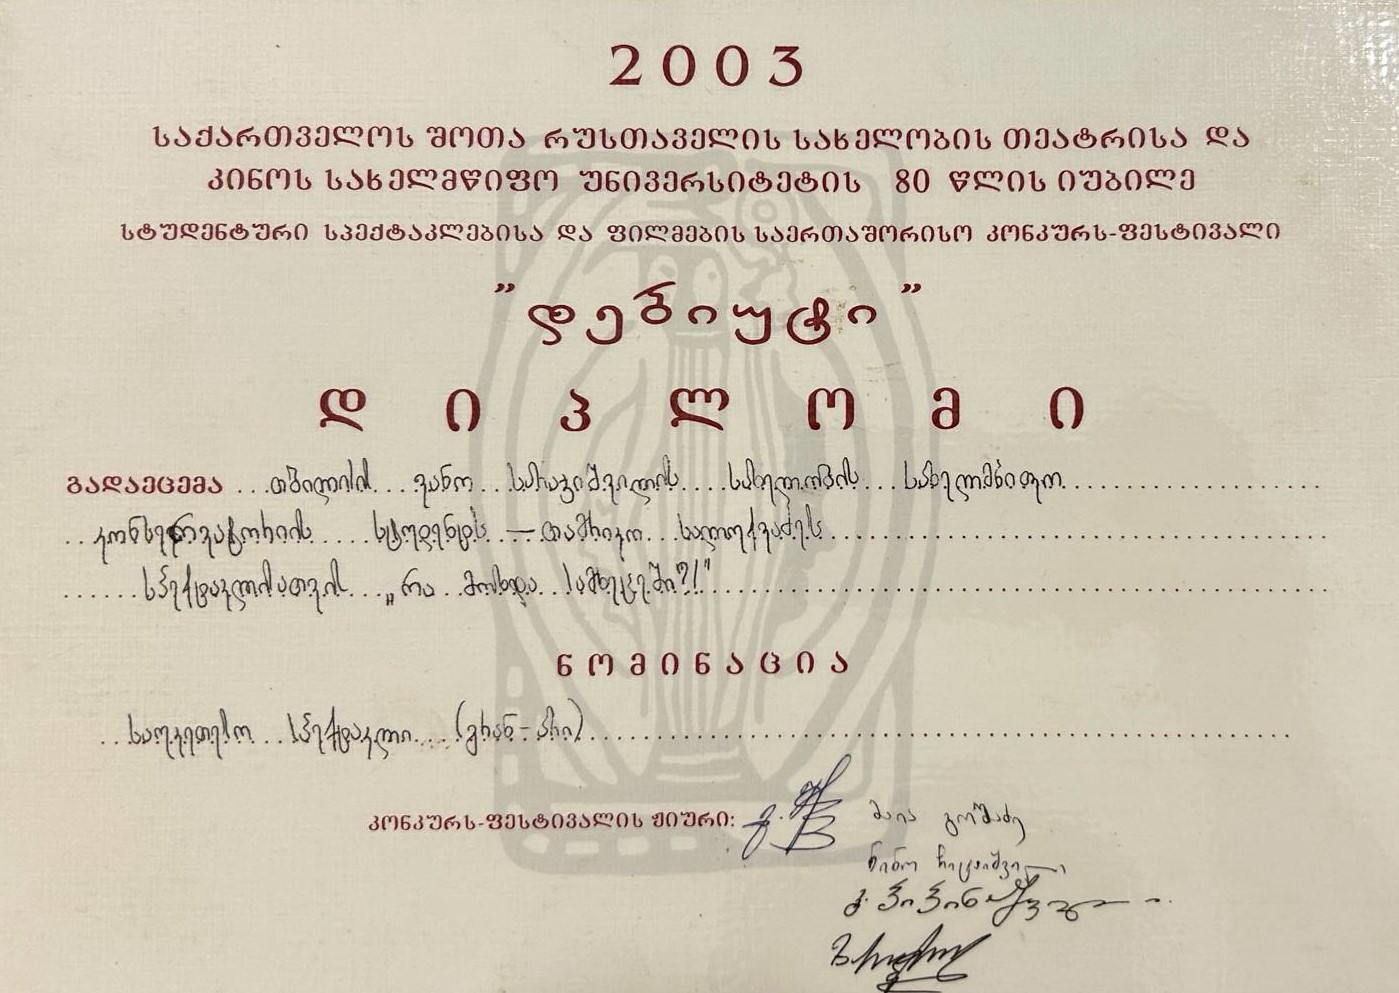 2003
საქართველოს შოთა რუსთაველის სახელობის თეატრისა და
კინოს სახელმწიფო უნივერსიტეტის 80 წლის იუბილე
სტუდენტური სპექტაკლებისა და ფილმების საერთაშორისო კონკურს-ფესტივალი
"დებიუტი"
დიპლომი
გადაეცემა ...თბილისის... ვანო ..სარაჯიშვილის.... სახელობის... სახელმწიფო
..კონსერვატორიის..... სტუდენტს ..—თამრიკო.. სალუქვაძეს
......სპექტაკლისათვის...„რა ..მოხდა.. სამხეცეში?!"
ნომინაცია
..საუკეთესო.. სპექტაკლი... (გრან-პრი)
კონკურს-ფესტივალის ჟიური:
მაია გოშაძე
ნინო